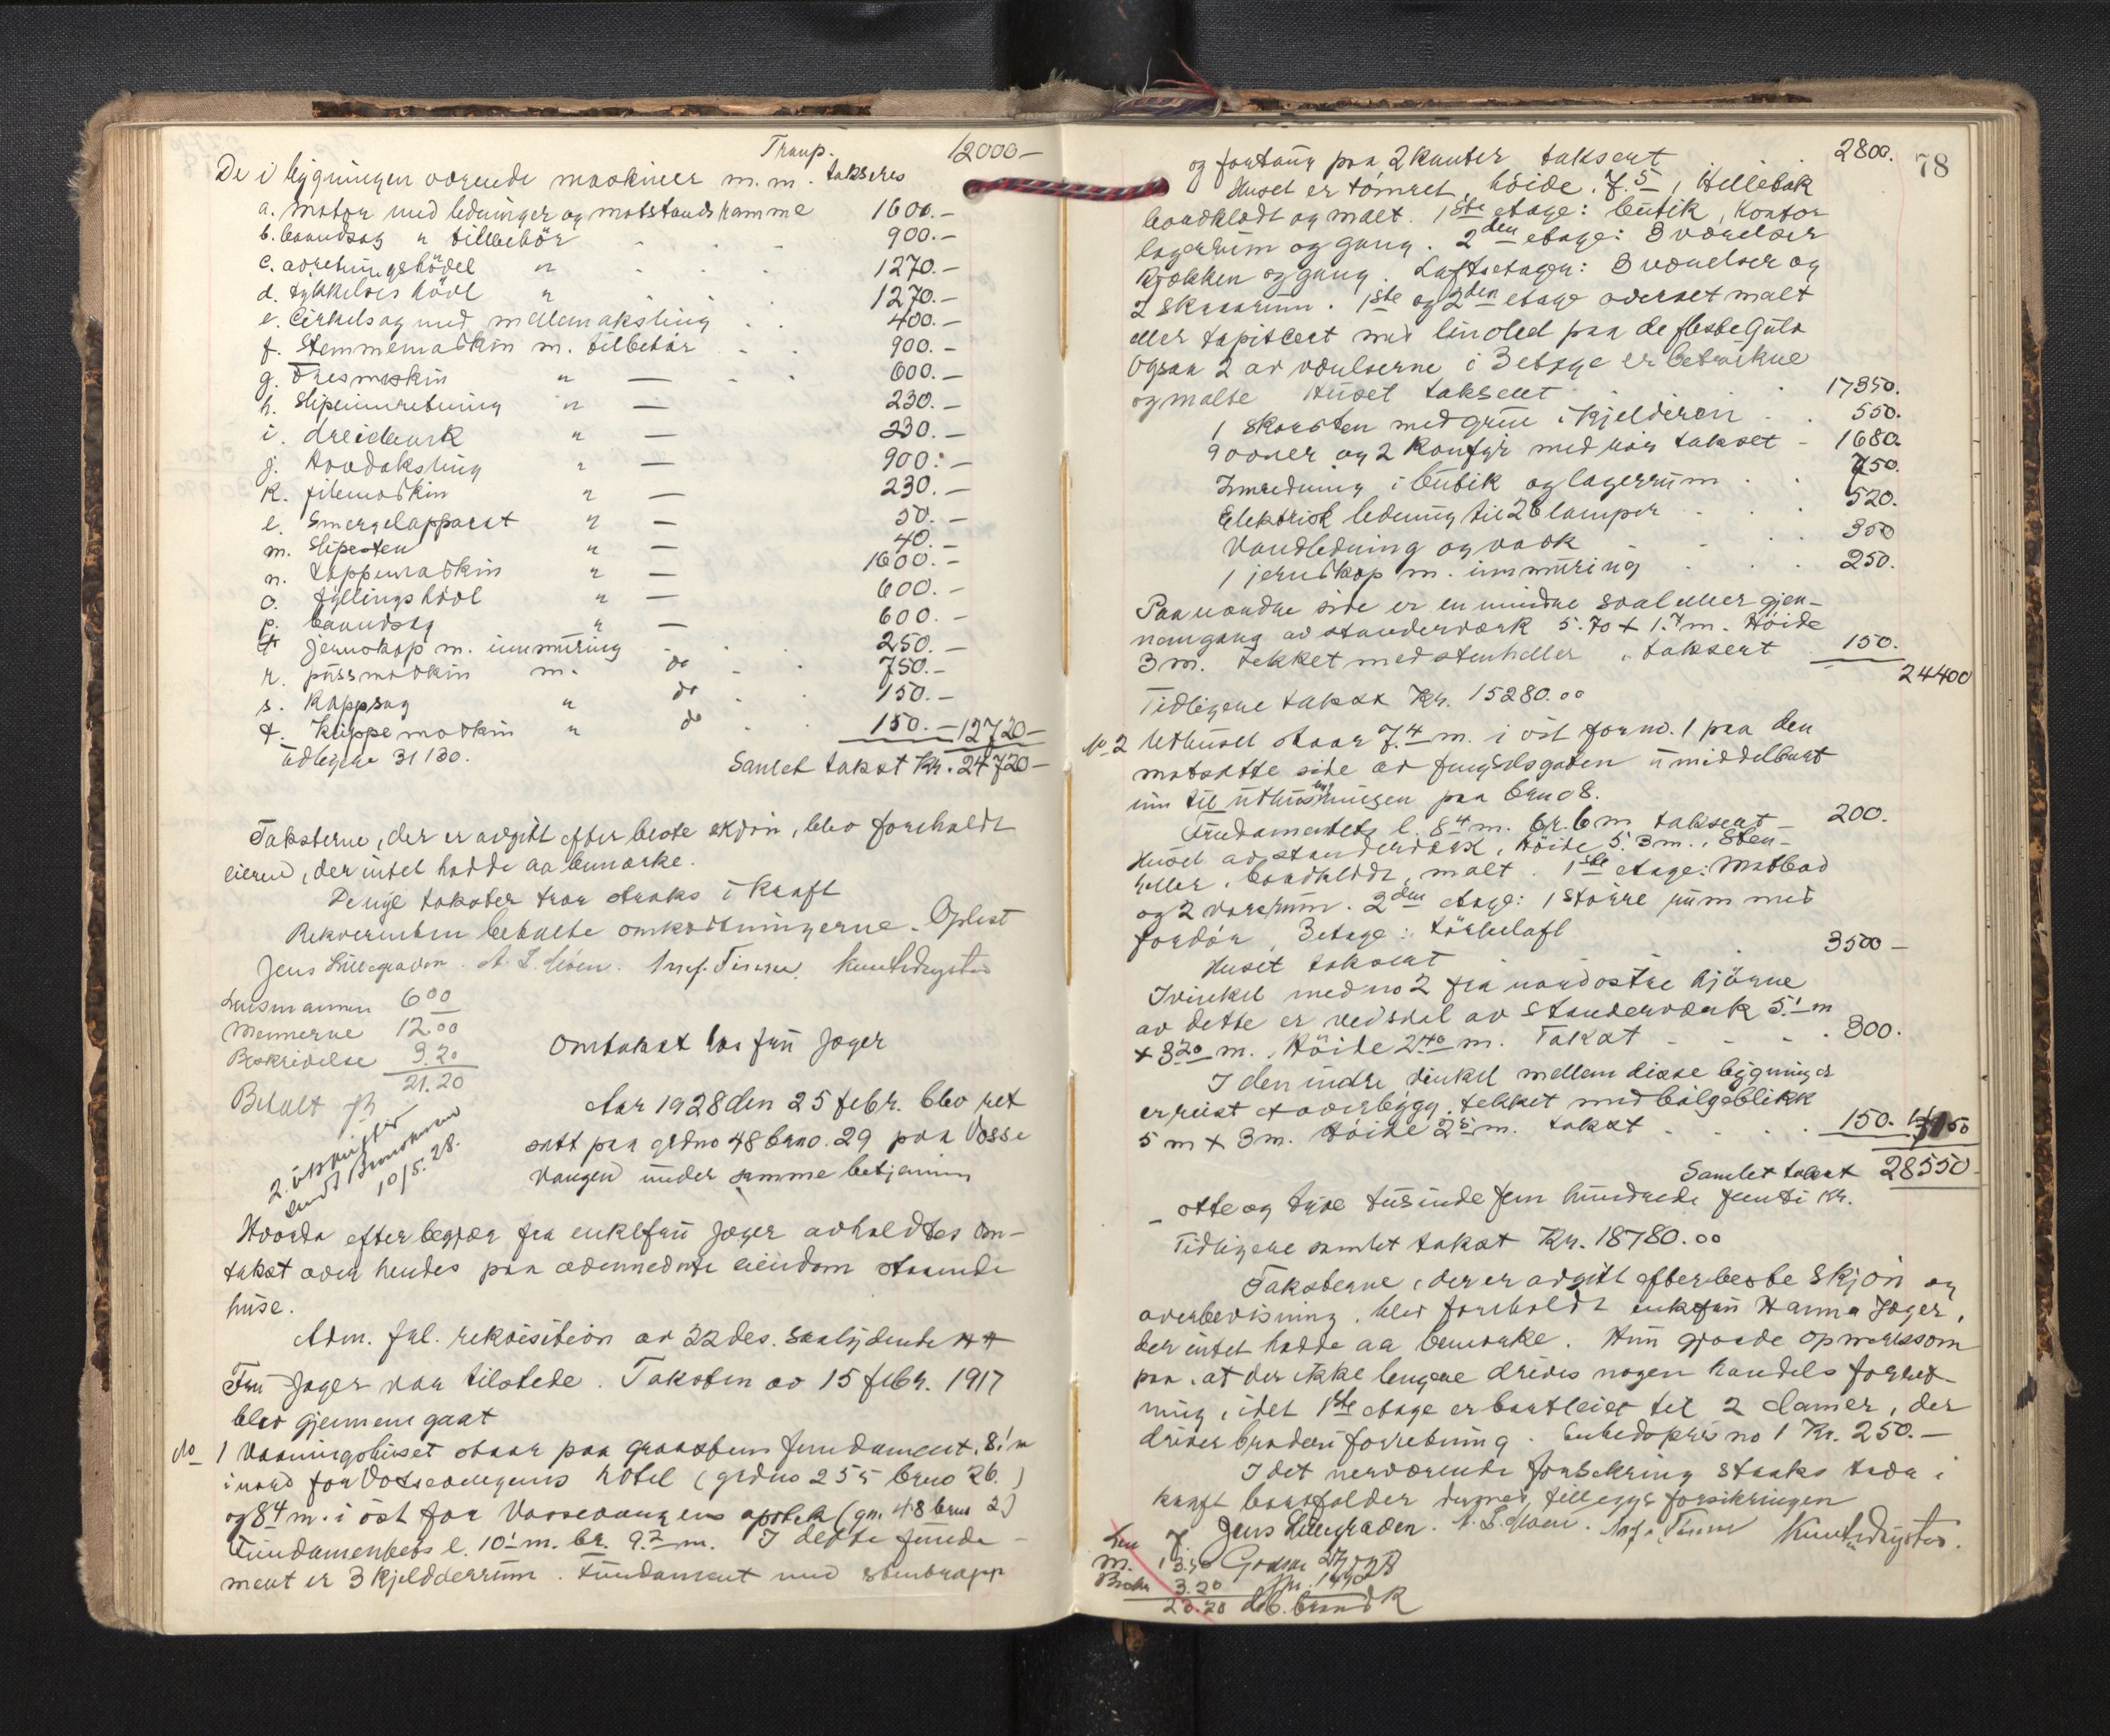 Transp. 12000 —
De i bygningen værende maskiner m. m. takseres
a. Motor med ledninger og motstandsramme 1600. —
b. baandsag " tillbehör 900. —
c. avretningshövel " 1270. —
d. tykkelses hövl " 1270. —
e. Cirkelsag med mellemaksling 400. —
f. Stemmemaskin m. tilbehör 900. —
g. Fresmaskin " — 600. —
h. Slipeinnretning " — 230. —
i. dreiebenk " — 230. —
j. Hovdaksling " — 900. —
k. filemaskin " — 230. —
l. Smergelapparat " — 50. —
m. Slipesten " — 40. —
n. tappemaskin " — 1600. —
o. fyllingshövl " — 600. —
p. baandsag " — 600. —
q. jernskap m. innmuring 250. —
r. pussmaskin m. do 750. —
s. Kappsag " do 150. —
t. Klippemaskin " do 150. — 12720 —
tidligere 31130. Samlet takst Kr. 24720 —
Taksterne, der er avgitt efter beste skjön, blev foreholdt
eieren, der intet hadde aa bemerke.
De nye takster trær straks i kraft
Rekvirenten betalte omkostningerne. Oplest
Jens Lillegraven. A. L. Moen. Knut Dugstad
Lensmannen 6 00
Mennerne 12 00
Beskrivelse 3. 20
21. 20
Betalt
2. utskrifter
sendt Brandkassen
10/5. 28.
Omtakst hos fru Jæger
Aar 1928 den 25 febr. blev ret
satt paa grdno 48 brno. 29 paa Vosse
vangen under samme betjening
Hvorda efter begjær fra enkefru Jæger avholdtes om-
takst over hendes paa ovennevnte eiendom staaende
huse.
Adm. frl. rekvisition av 22 des. saalydende ++
Fru Jæger var tilstede. Taksten av 15 febr. 1917
blev gjennemgaat
No 1 Vaaningshuset staar paa graastens fundament, 8.1 m
i nord for Vossevangens hotel (grdno 255 brno 26.)
og 8 4 m. i öst for Vossevangens apotek (gn. 48 brno 2)
Fundamentets l. 10.1 m. br. 9.2 m. I dette funda-
ment er 3 kjelderrum. Fundament med stentrapp
78
og fortaug paa 2 kanter taksert 2800.
Huset er tömret, höide 7.5, Hellebak
bordklædt og malt. 1ste etage: butik, kontor
lagerrum og gang. 2den etage: 3 værelser
kjökken og gang. Loftsetagen: 3 værelser og
2 skraarum. 1ste og 2den etage overalt malt
eller tapiscert med linoled paa de fleste gulv
Ogsaa 2 av værelserne i 3 etage er betrukne
og malte Huset taksert 17350.
1 skorsten med grue i kjelderen 550.
9 ovner og 2 komfyr med rör takset - 1680.
Innredning i butik og lagerrum 750.
Elektrisk ledning til 26 lamper 520.
Vandledning og vask 350
1 jernskap m. innmuring 250.
Paa nordre side er en mindre sval eller gjen-
nemgang av standerværk 5.70 + 1.7 m. Höide
3 m. tekket med stenheller, taksert 150.
24400
Tidligere takst Kr. 15280.00
No 2 Uthuset staar 7.4 m. i öst for no. 1 paa den
motsatte side av fengselsgaten umiddelbart
inn til uthusbygningen paa brno 8.
Fundamentets l. 8 4 m. br. 6 m taksert - 200.
Huset av standerværk, höide 5.3 m., Sten-
heller, bordklædt, malt. 1ste etage: Matbod
og 2 vaserum. 2den etage: 1 större rum med
fordör, 3 etage: törkeloft
Huset taksert 3500 —
I vinkel med no 2 fra nordostre hjörne
av dette er vedskal av standerværk 5.1 m
+ 3 20 m. Höide 2 40 m. Takst 300.
I den indre vinkel mellem disse bygninger
er reist et overbygg. tekket med bölgeblikk
5 m + 3 m. Höide 2 5 m. takst 150. 4150
Samlet takst 28550 —
— otte og tyve tusinde fem hundrede femti kr.
Tidligere samlet takst Kr. 18780.00
Taksterne, der er avgitt efter beste skjön og
overbevisning, blev foreholdt enkefru Hanna Jæger,
der intet hadde aa bemerke. Hun gjorde opmerksom
paa, at der ikke lengere drives nogen handels forret-
ning, idet 1ste etage er bortleiet til 2 damer, der
driver broderiforretning. Enhedspris no 1 Kr. 250. —
I det nerværende forsikring straks træ i
kraft bortfalder dermed tilleggsforsikringen
Jens Lillegraven. A. L. Moen. Knut Dugstad.
Len 7.
M. 13.50
Beskr 3.20
23.20 deb. brandk